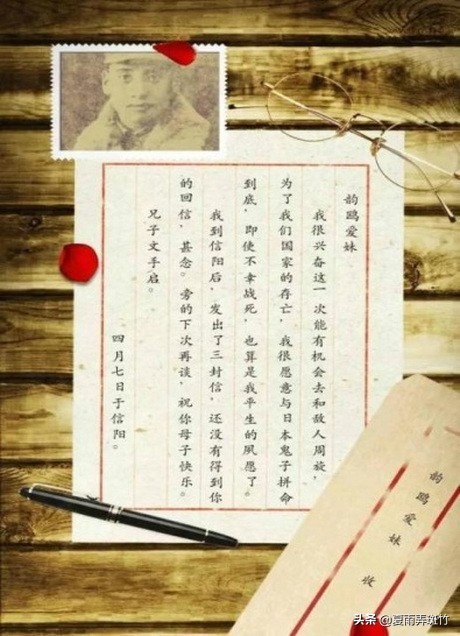 韵鸥爱妹
我很兴奋这一次能有机会去和敌人周旋，
为了我们国家的存亡，我很愿意与日本鬼子拼命
到底，即使不幸战死，也算是我平生的夙愿了。
我到信阳后，发出了三封信，还没有得到你
的回信，甚念。旁的下次再谈，祝你母子快乐。
兄子文手启。
四月七日于信阳。
韵鸥爱妹 收
头条 @夏雨弄斑竹